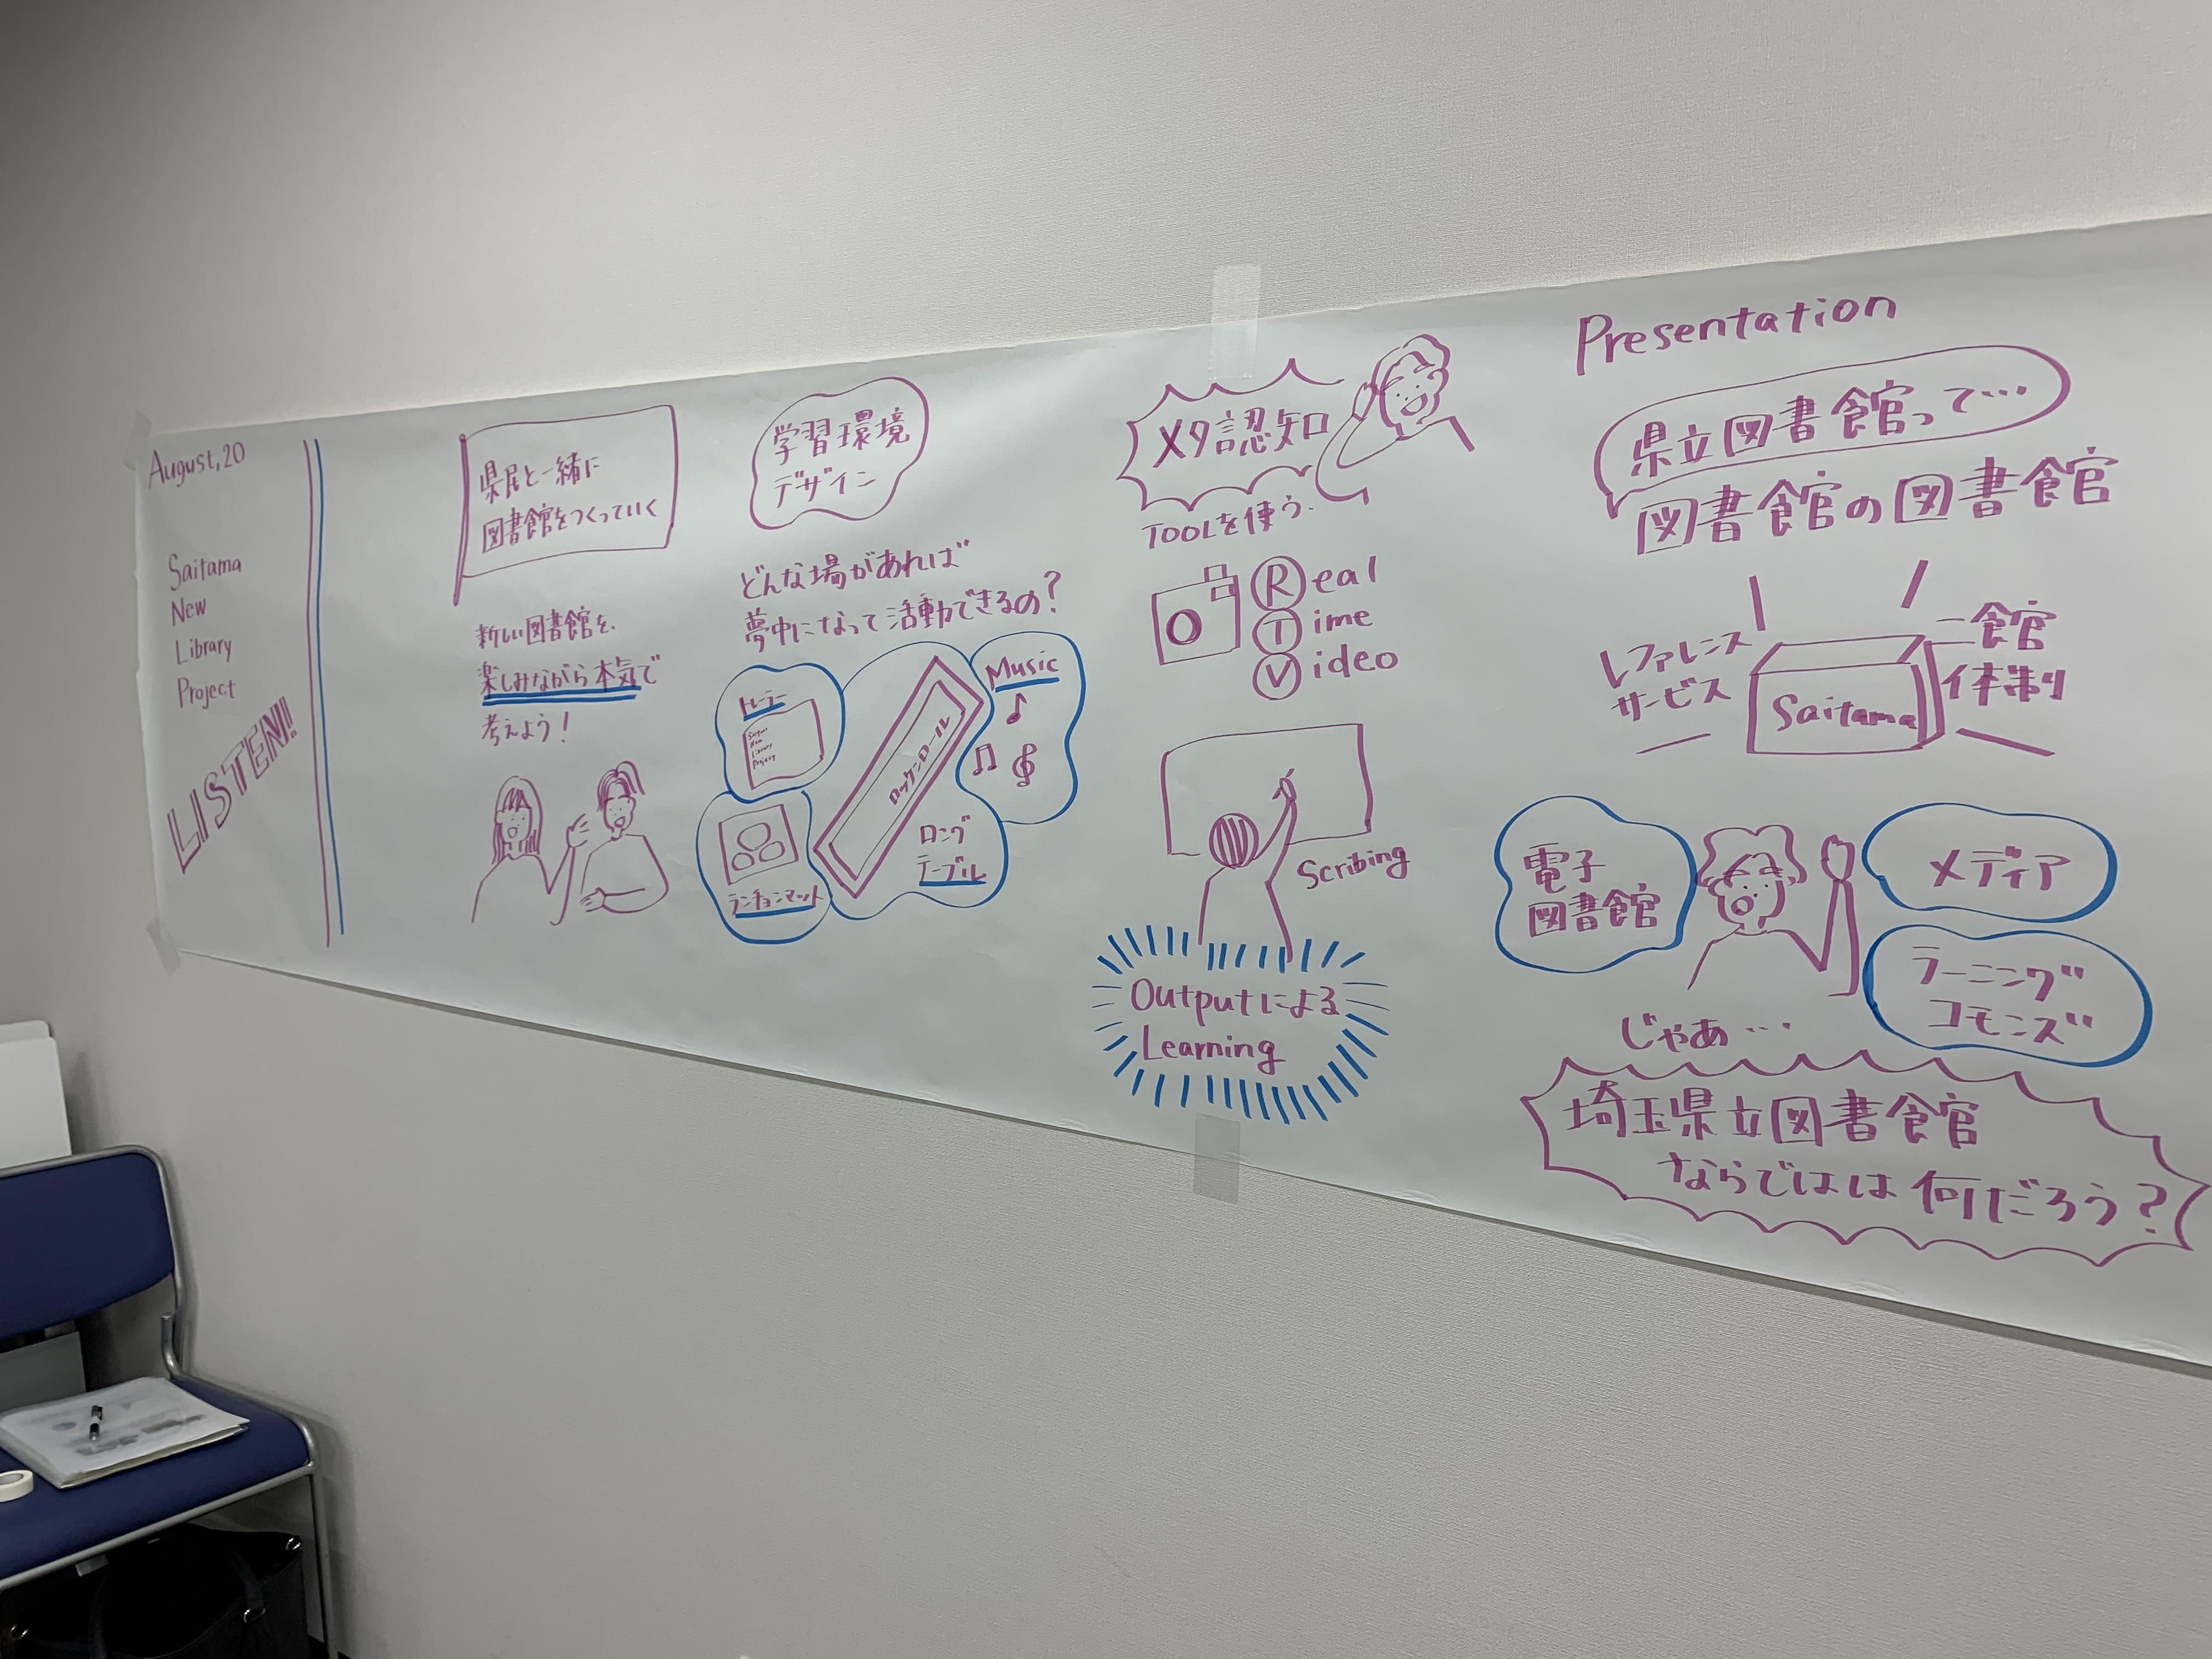 August, 20
Saitama
New
Library
Project
LISTEN!!
県民と一緒に
図書館をつくっていく
新しい図書館を、
楽しみながら本気で
考えよう!
学習環境
デザイン
どんな場があれば
夢中になって活動できるの?
トレーナー
Saitama
New
Library
Project
ランチョンマット
ロッケンロール
ロング
テーブル
Music
メタ認知
TOOLを使う.
Real
Time
Video
Scribing
Outputによる
Learning
Presentation
県立図書館って…
図書館の図書館
レファレンス
サービス
Saitama
二館
体制
電子
図書館
メディア
ラーニング
コモンズ
じゃあ…
埼玉県立図書館
ならではは何だろう?